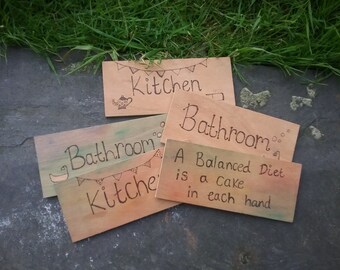 Kitchen
Bathroom
Bathroom
Kitchen
A Balanced Diet
is a cake
in each hand